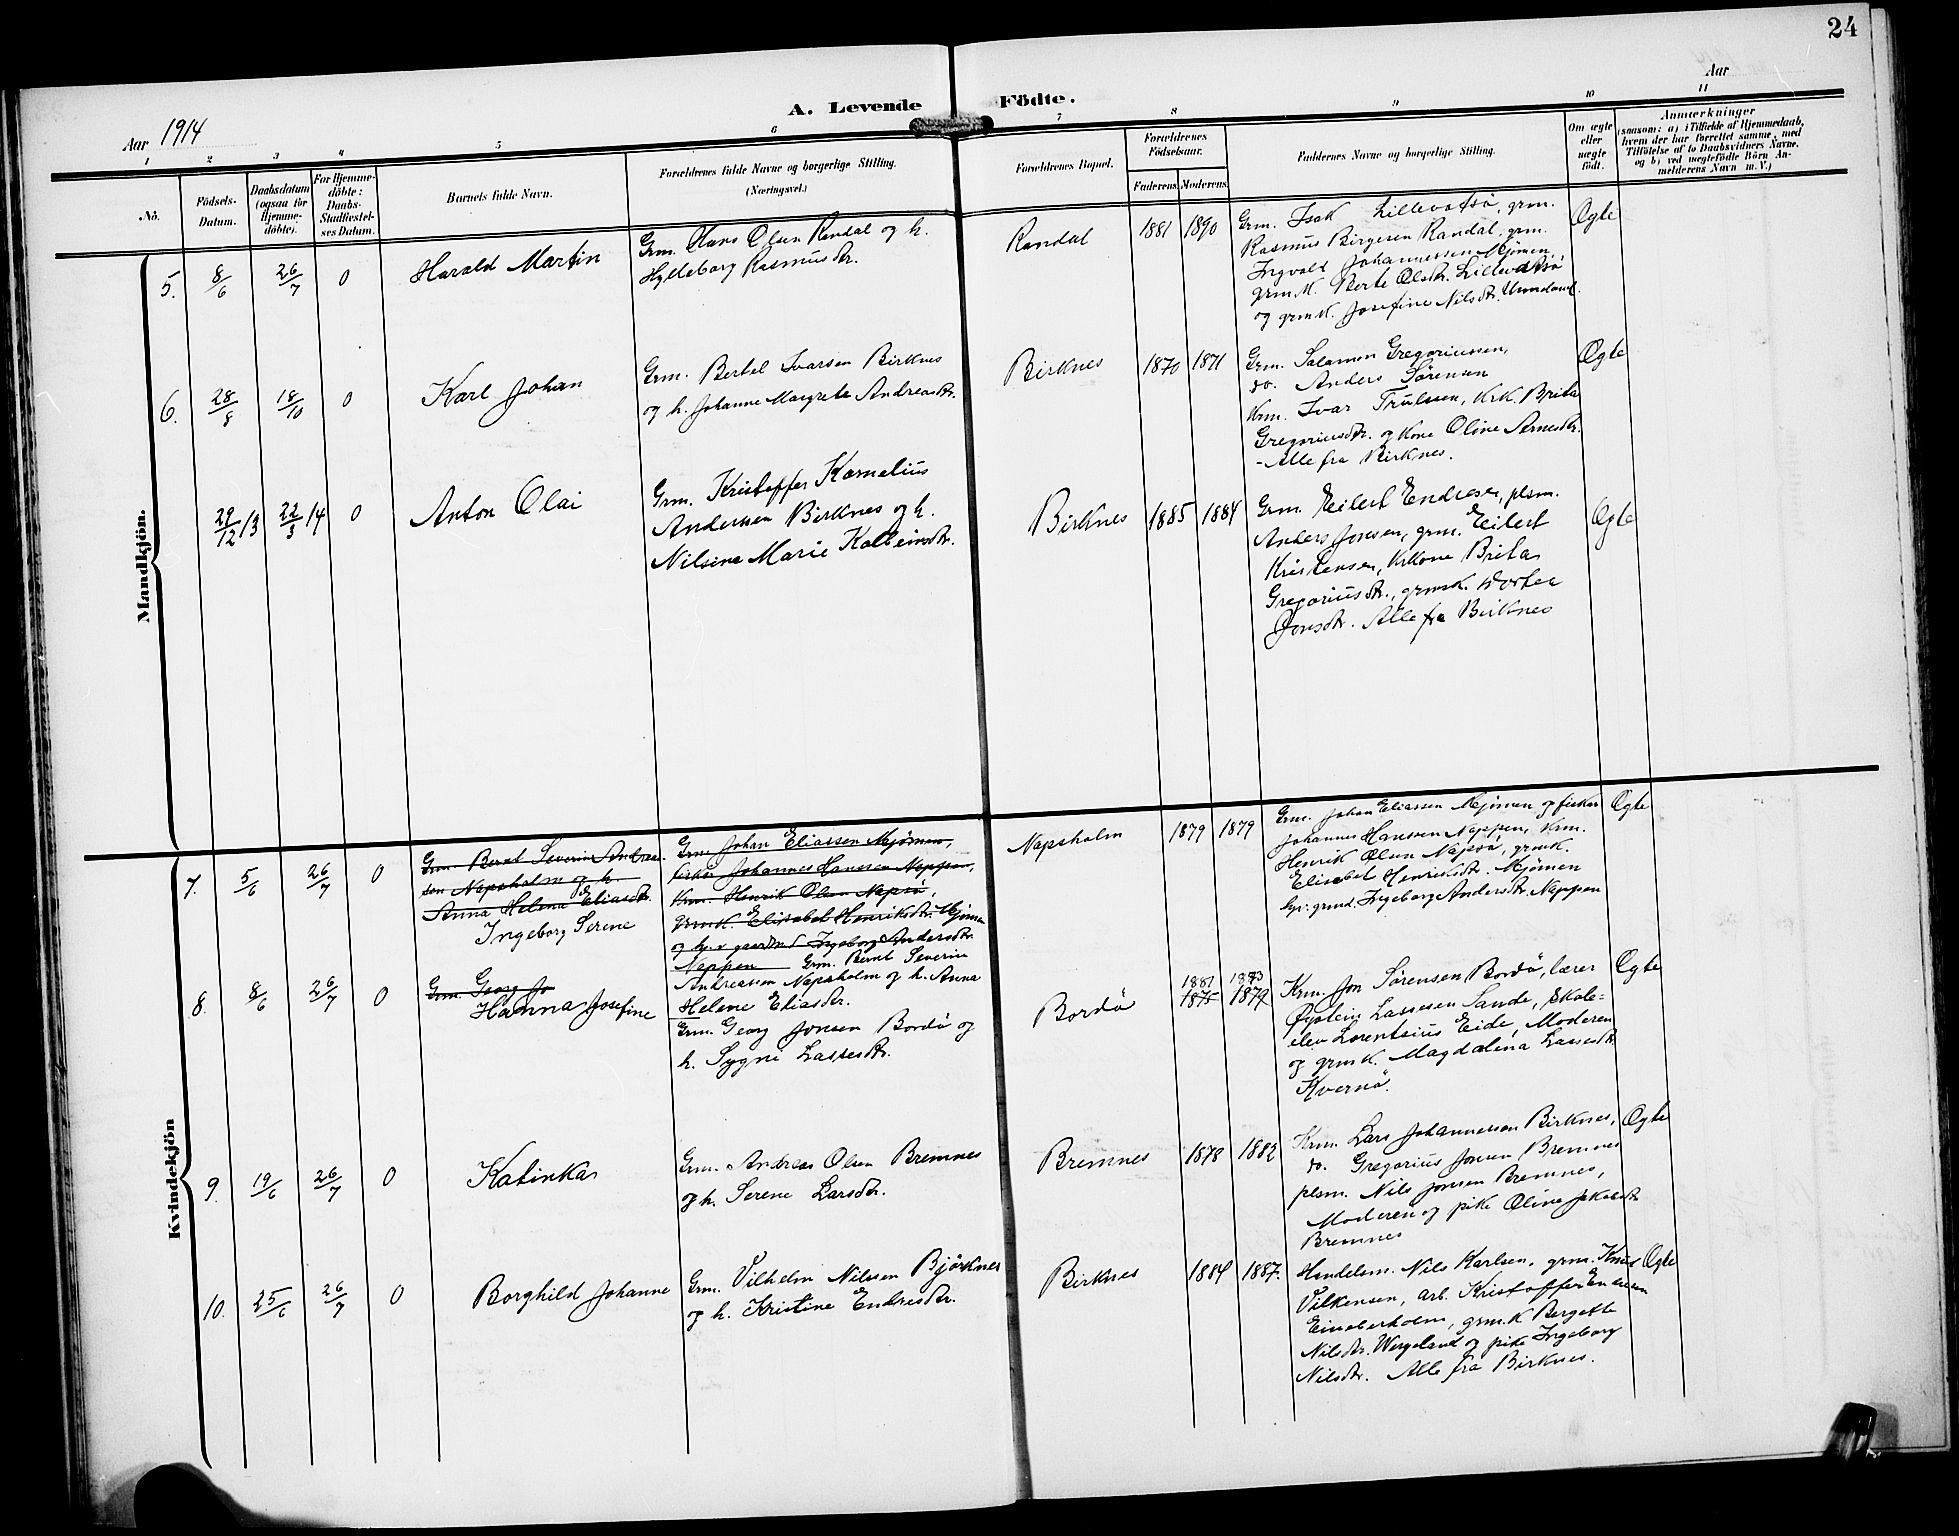 24
Aar 1914
A. Levende Födte.
Aar
1 2 3 4 5 6 7 8 9 10 11
No.
Födsels-Datum.
Daabsdatum (ogsaa for Hjemme-döbte).
For Hjemme-döbte: Daabs-Stadfæstel-ses Datum.
Barnets fulde Navn.
Forældrenes fulde Navne og borgerlige Stilling. (Næringsvei.)
Forældrenes Bopæl.
Forældrenes Födselsaar.
Faderens. Moderens.
Faddernes Navne og borgerlige Stilling.
Om ægte eller uægte födt.
Anmærkninger
(saasom: a) i Tilfælde af Hjemmedaab,
hvem der har forrettet samme, med
Tilföielse af to Daabsvidners Navne.
og b) ved uægtefödte Börn An-
melderens Navn m. V.)
Mandkjön.
5. 8/6 26/7 0 Harald Martin
Grm. Hans Olsen Randal og h.
Hylleborg Rasmusdtr.
Randal 1881 1890
Grm. Isak Lillevatsö, grm.
Rasmus Birgesen Randal, grm.
Ingvald Johannessen Mjömen
grmk. Berte Olsdtr. Lillevatsö
og grmk. Josefine Nilsdtr.
Ægte
6. 28/8 18/10 0 Karl Johan
Grm. Bertel Ivarsen Birknes
og h. Johanne Margrete Andreasdtr.
Birknes 1870 1871
Grm. Salamon Gregoriussen,
do. Anders Sörensen
Krm. Ivar Trulssen, Krk. Brita
Gregoriusdtr. og Kone Oline Arnesdtr.
- Alle fra Birknes.
Ægte
29/12 13 22/3 14 0 Anton Olai
Grm. Kristoffer Kornelius
Andersen Birknes og h.
Nilsine Marie Kolbeinsdtr.
Birknes 1885 1884
Grm. Eilert Endresen, plsm.
Anders Jonsen, grm. Eilert
Kristensen, Krkone Brita
Gregoriusdtr., grmk. Dortea
Jonsdtr. Alle fra Birknes
Ægte
Kvindekjön
7. 5/6 26/7 0
Grm. Bernt Severin Andreas-
sen Napsholm og h.
Anna Helene Eliasdtr.
Ingeborg Serene
Grm. Johan Eliassen Mjömen,
fisker Johannes Hanssen Nappen,
Krm. Henrik Olsen Napsö,
grmk. Elisabet Henriksdtr. Mjömen
Ingeborg Andersdtr.
Nappen Grm. Bernt Severin
Andreassen Napsholm og h. Anna
Helene Eliasdtr.
Napsholm 1879 1879
Grm. Johan Eliassen Mjömen og fisker
Johannes Hanssen Nappen, Krm.
Henrik Olsen Napsö, grmk.
Elisabet Henriksdtr. Mjömen
Ingeborg Andersdtr. Nappen
Ægte
8. 8/6 26/7 0
Grm. Georg Jo
Hanna Josefine
Grm. Georg Jonsen Bordö og
h. Sygni Lassesdtr.
Bordö 1881 1883
1875 1879
Krm. Jon Sörensen Bordö, lærer
Öystein Lassesen Sande, Skole-
elev Lorentsius Eide, Moderen
og grmk. Magdalena Lassesdtr
Kvernö.
Ægte
9. 19/6 26/7 0 Katinka
Grm. Andreas Olsen Bremnes
og h. Serene Larsdtr.
Bremnes 1878 1882
Krm. Lars Johannessen Birknes,
do. Gregorius Jonsen Bremnes
plsm. Nils Jonsen Bremnes,
Moderen og pike Oline Jakobsdtr
Bremnes
Ægte
10. 25/6 26/7 0 Borghild Johanne
Grm. Vilhelm Nilssen Björknes
og h. Kristine Endresdtr.
Birknes 1884 1887.
Handelsm. Nils Karlsen, grm. Knud
Vilkensen, arb. Kristoffer Endresen
Eineberholm, grmk Bergette
Nilsdtr. Wergeland og pike Ingeborg
Nilsdtr. Alle fra Birknes.
Ægte